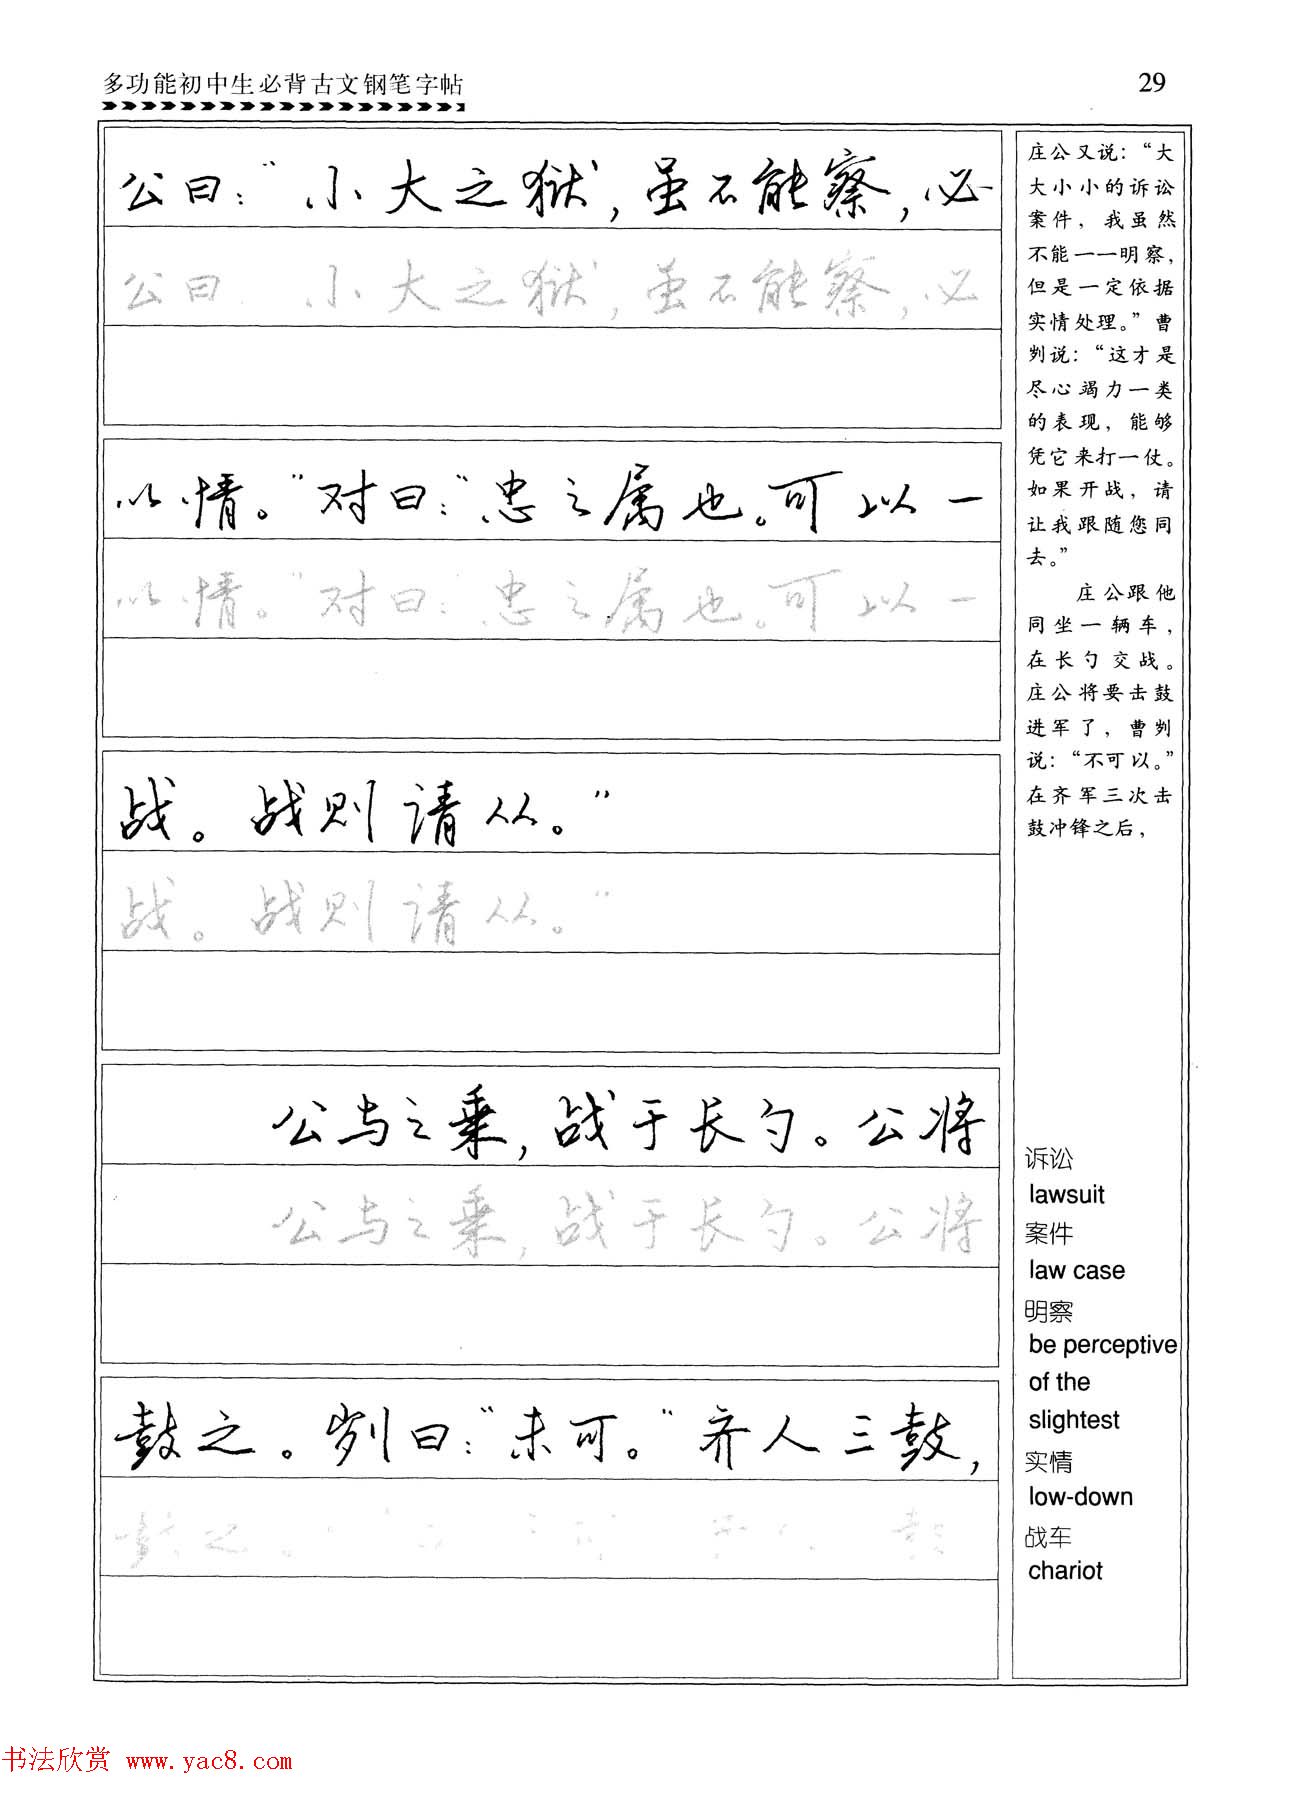 多功能初中生必背古文钢笔字帖
29
公曰：“小大之狱，虽不能察，必
公曰 小大之狱，虽不能察，必
以情。”对曰：“忠之属也。可以一
以情。”对曰：“忠之属也。可以一
战。战则请从。”
战。战则请从。”
公与之乘，战于长勺。公将
公与之乘，战于长勺。公将
鼓之。刿曰：“未可。”齐人三鼓，
鼓之。
庄公又说：“大
大小小的诉讼
案件，我虽然
不能一一明察，
但是一定依据
实情处理。”曹
刿说：“这才是
尽心竭力一类
的表现，能够
凭它来打一仗。
如果开战，请
让我跟随您同
去。”
庄公跟他
同坐一辆车，
在长勺交战。
庄公将要击鼓
进军了，曹刿
说：“不可以。”
在齐军三次击
鼓冲锋之后，
诉讼
lawsuit
案件
law case
明察
be perceptive
of the
slightest
实情
low-down
战车
chariot
书法欣赏 www.yac8.com